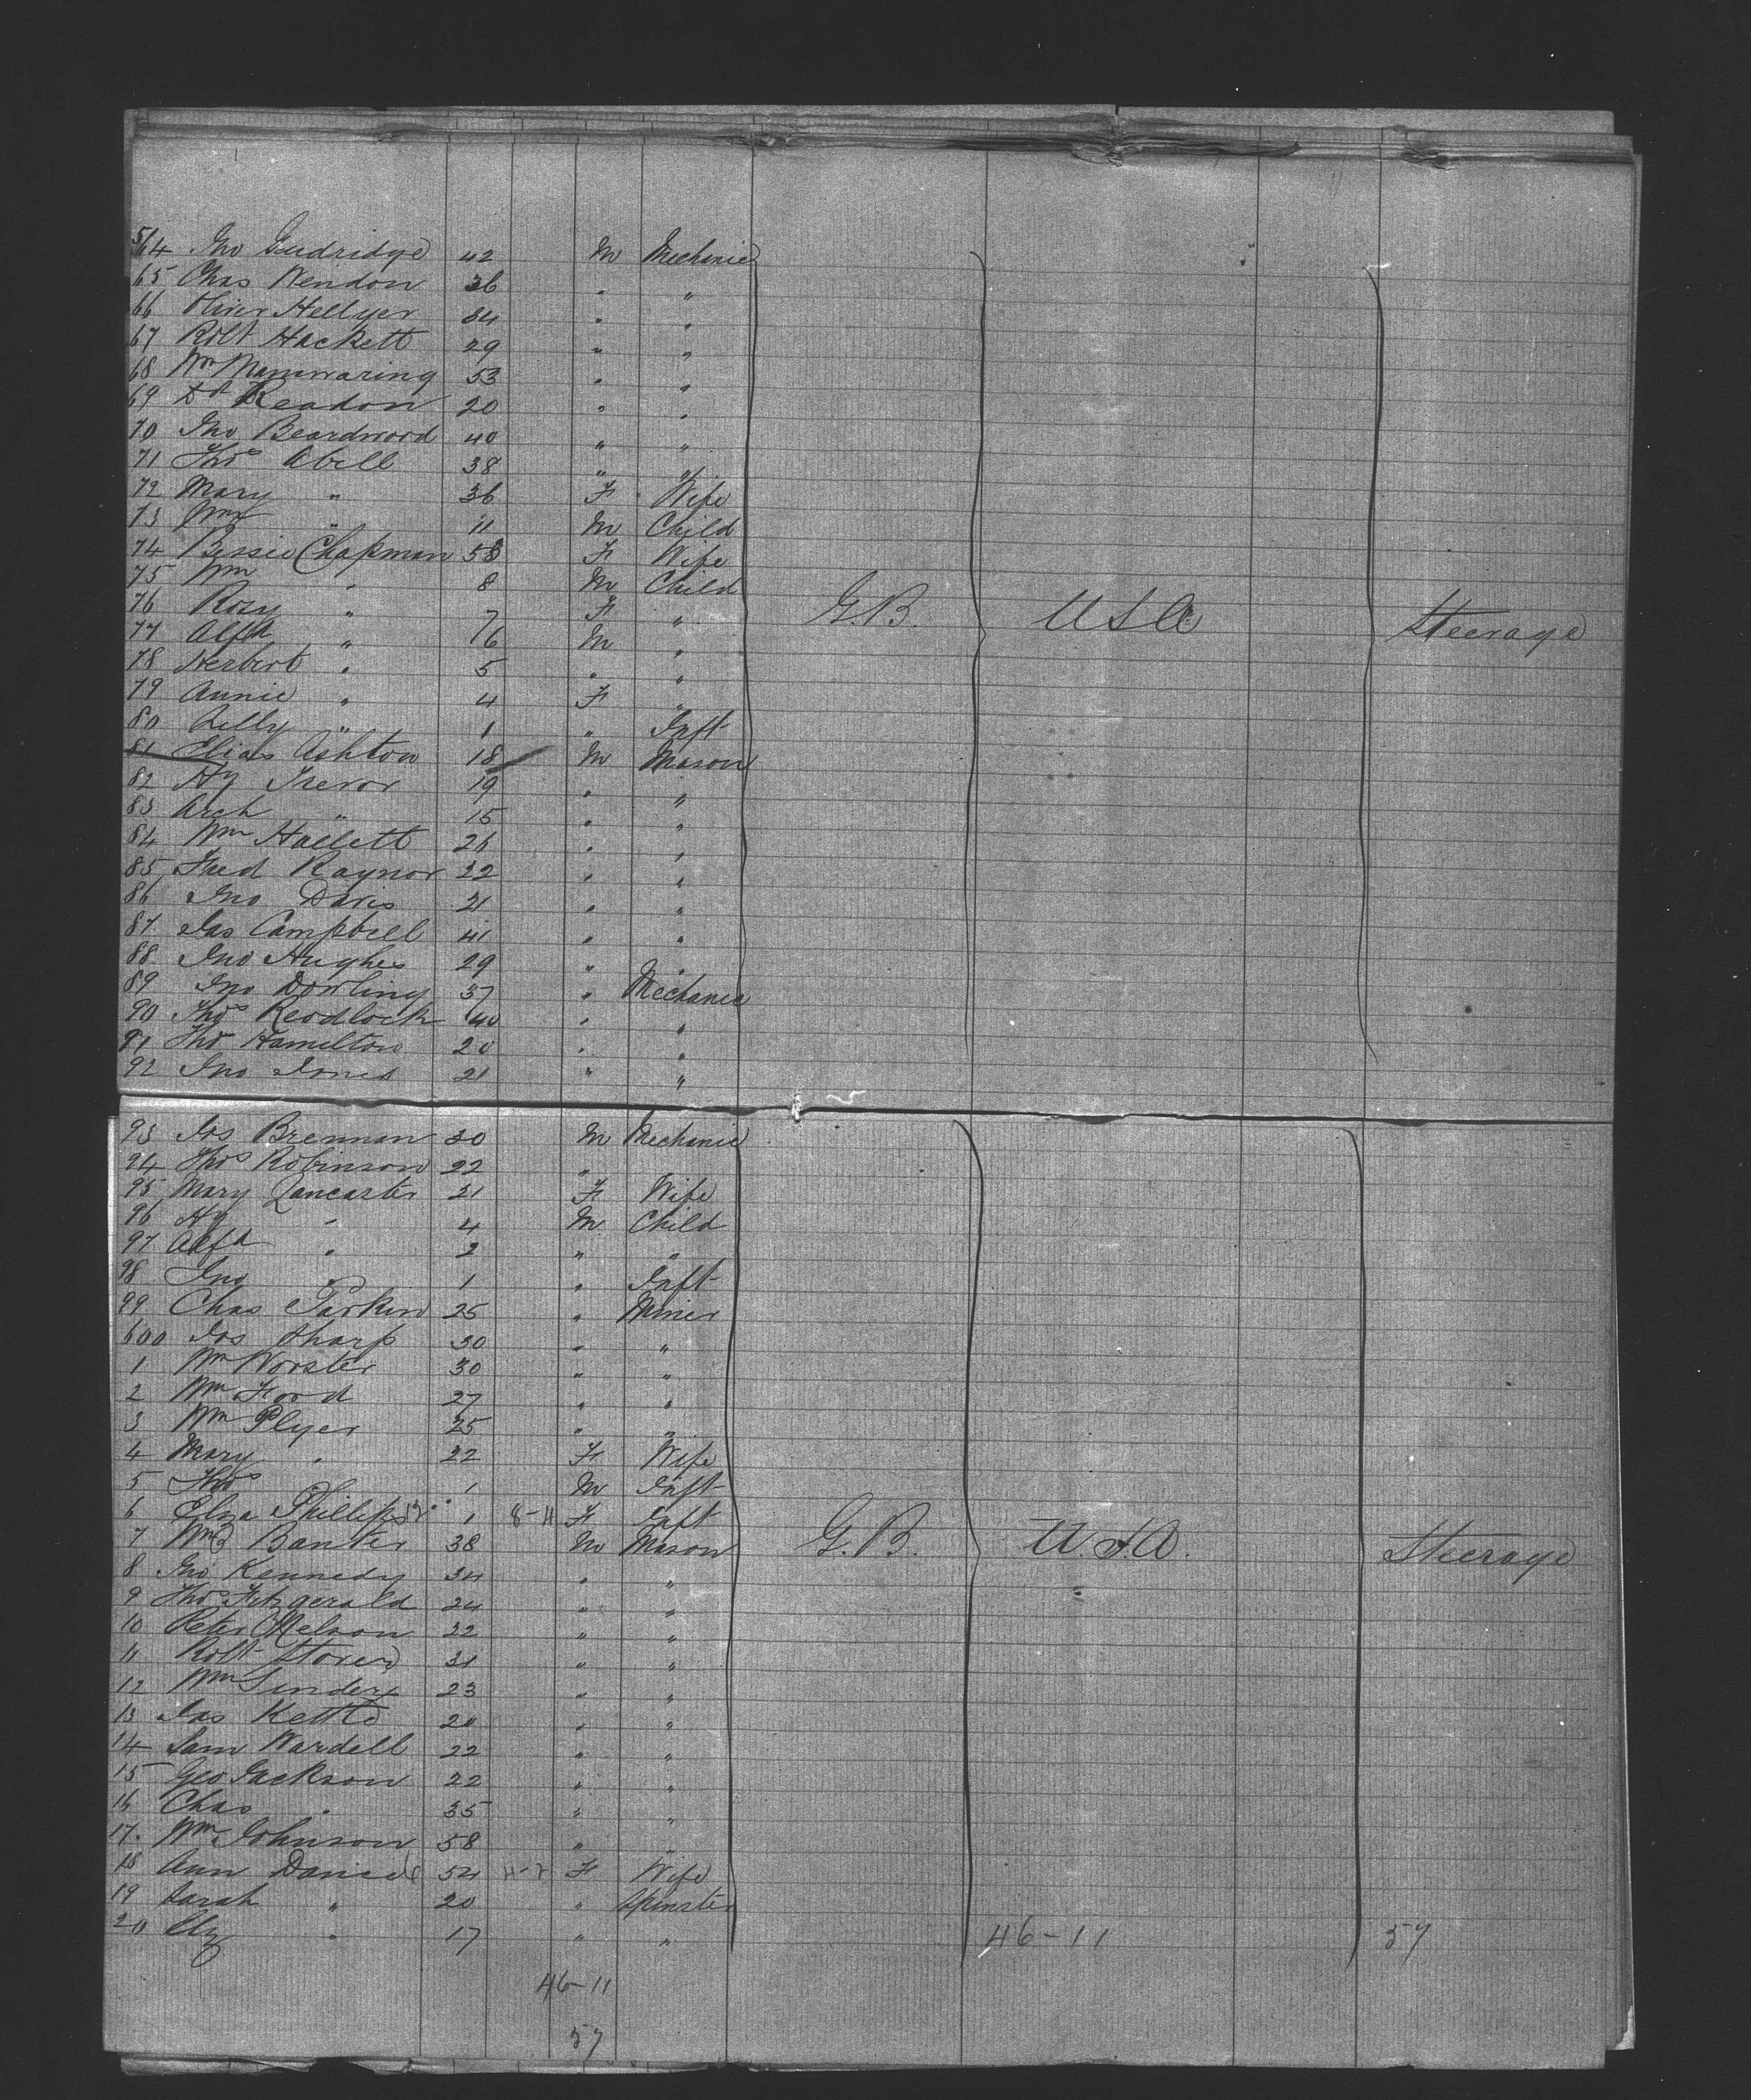 564 Jno Gudridge 42 M Mechanic
65 Chas Wendon 36 " "
66 Oliver Hellyer 34 " "
67 Robt Hackett 29 " "
68 Wm Mainwaring 53 " "
69 Dd Readon 20 " "
70 Jno Beardwood 40 " "
71 Thos Abell 38 " "
72 Mary " 36 F Wife
73 Wm " 11 M Child
74 Bessie Chapman 58 F Wife
75 Wm " 8 M Child
76 Rosy " 7 F " G.B. U S A Steerage
77 Alfd " 6 M "
78 Herbert " 5 " "
79 Annie " 4 F "
80 Lilly " 1 " Inft
81 Elias Ashton 18 M Mason
82 Hy Trevor 19 " "
83 Arch " 15 " "
84 Wm Hallett 26 " "
85 Fred Raynor 22 " "
86 Jno Davis 21 " "
87 Jas Campbell 41 " "
88 Jno Hughes 29 " "
89 Jno Dowling 37 " Mechanic
90 Thos Readlock 40 " "
91 Thos Hamilton 20 " "
92 Jno Jones 21 " "
93 Jos Brennan 30 M Mechanic
94 Thos Robinson 22 "
95 Mary Lancaster 21 F Wife
96 Hy " 4 M Child
97 Alfd " 2 " "
98 Jno " 1 " Inft
99 Chas Parkin 25 " Miner
600 Jos Sharp 30 " "
1 Wm Worster 30 " "
2 Wm Ford 27 " "
3 Wm Plyer 25 " "
4 Mary " 22 F Wife
5 Thos " 1 M Inft
6 Eliza Phillips 1 8-11 F Inft
7 Wm Banter 38 M Mason G.B. U.S.A. Steerage
8 Jno Kennedy 34 " "
9 Thos Fitzgerald 24 " "
10 Peter Nelson 32 " "
11 Robt Storer 31 " "
12 Wm Linder 23 " "
13 Jas Kettle 20 " "
14 Sam Wardell 22 " "
15 Geo Jackson 22 " "
16 Chas " 35 " "
17. Wm Johnson 58 " "
18 Ann Daniel 54 F Wife
19 Sarah " 20 " Spinster
20 Elz " 17 " " 46-11 57
46-11
57